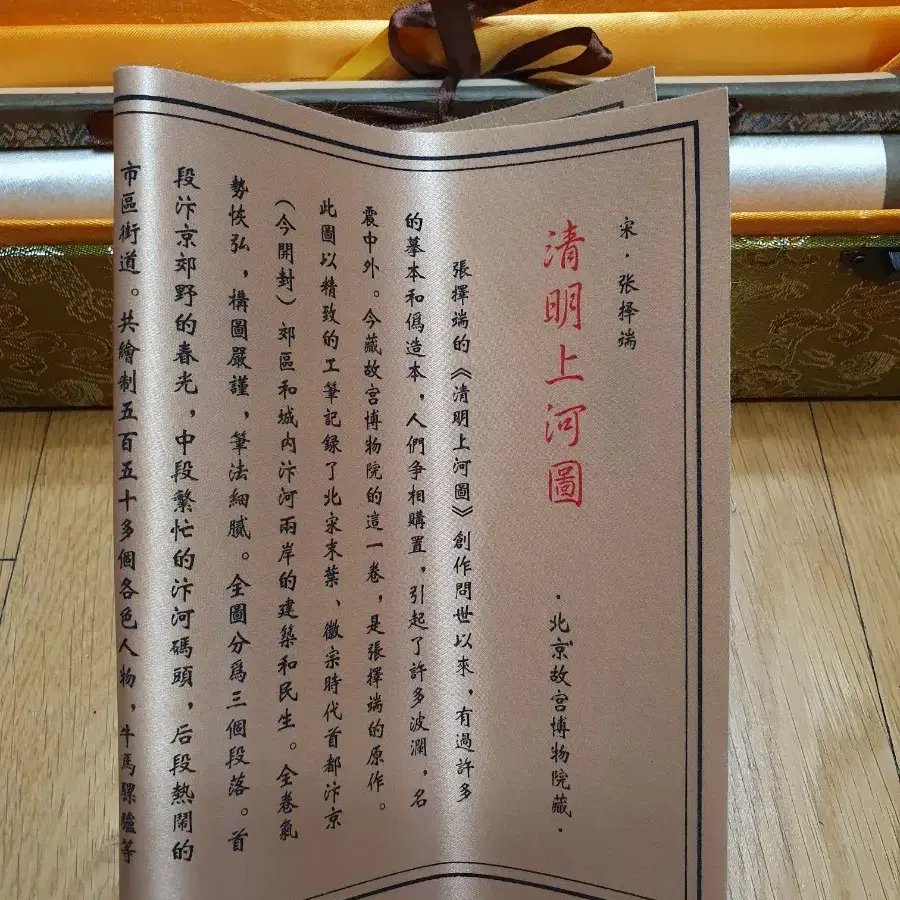 宋．张择端
清明上河圖
．北京故宫博物院藏．
張擇端的《清明上河圖》創作問世以來，有過許多
的摹本和僞造本，人們争相購置，引起了許多波瀾，名
震中外。今藏故宫博物院的這一卷，是張擇端的原作。
此圖以精致的工筆記録了北宋末葉、徽宗時代首都汴京
（今開封）郊區和城内汴河兩岸的建築和民生。全卷氣
勢恢弘，構圖嚴謹，筆法細膩。全圖分爲三個段落。首
段汴京郊野的春光，中段繁忙的汴河碼頭，后段熱鬧的
市區街道。共繪制五百五十多個各色人物，牛馬騾驢等